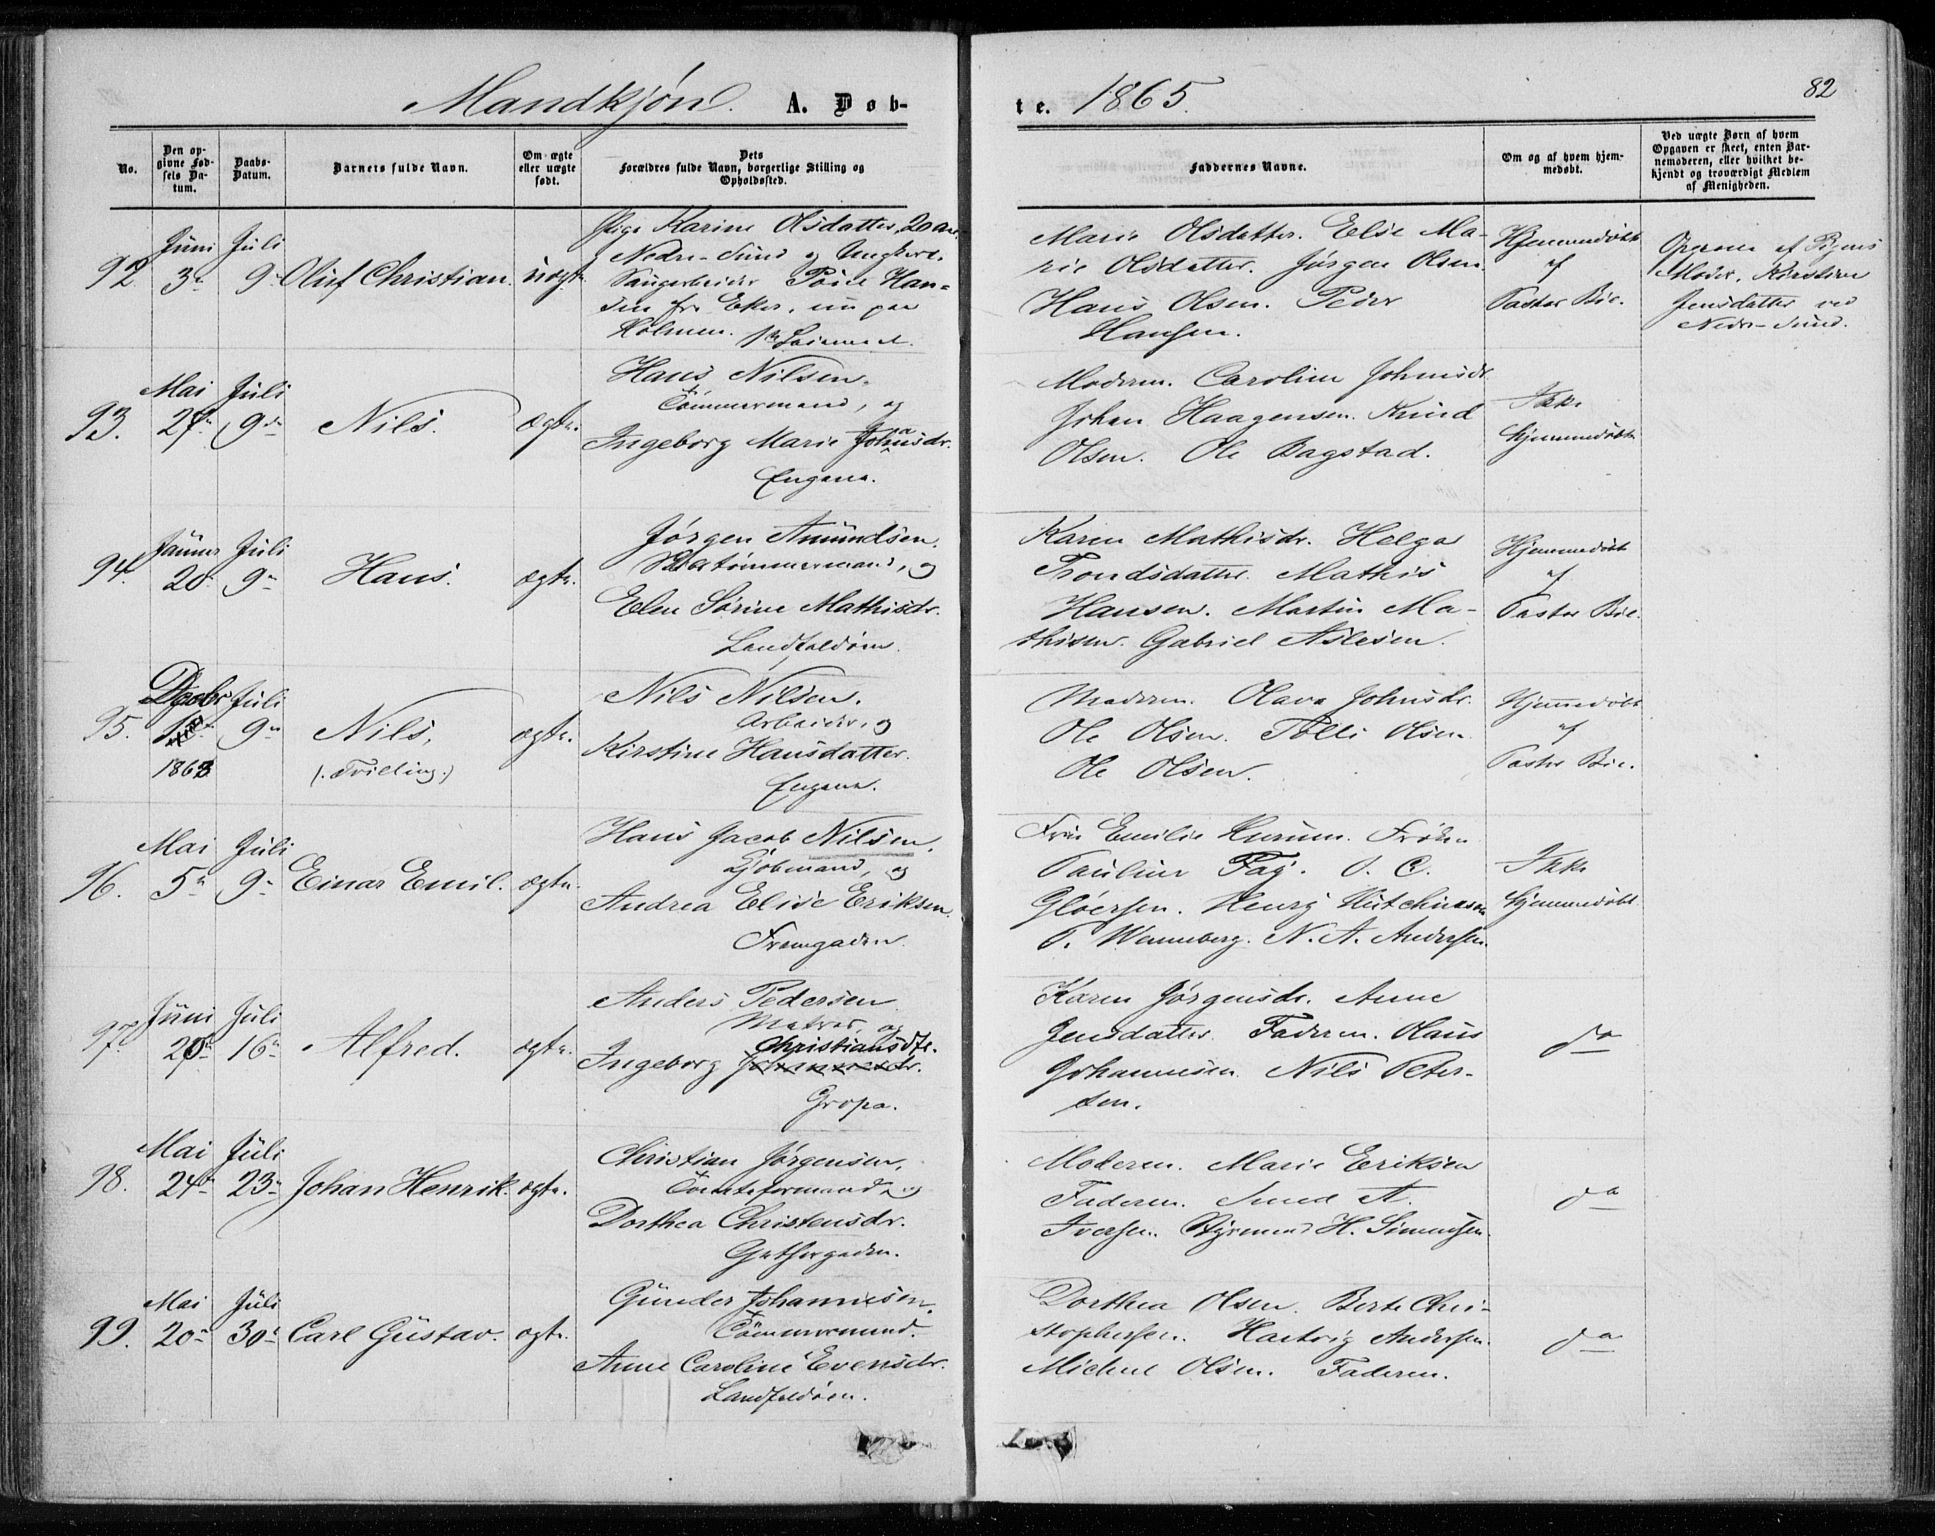 Mandkjøn. A. Døb-
te. 1865.
82
No.
Den op-
givne Fød-
sels Da-
tum.
Daabs-
Datum.
Barnets fulde Navn.
Om ægte
eller uægte
født.
Dets
Forældres fulde Navn, borgerlige Stilling og
Opholdssted.
Faddernes Navne.
Om og af hvem hjem-
medøbt.
Ved uægte Børn af hvem
Opgaven er skeet, enten Bar-
nemoderen, eller hvilket be-
kjendt og troværdigt Medlem
af Menigheden.
92.
Juni
3
Juli
9
Oluf Christian.
uægte.
Pige Karine Olsdatter, 20 Aar,
Nedre-Sund og Ungkarl.
Han-
sen fra Eker, nu paa
Holmen.
Marie Olsdatter. Else Ma-
rie Olsdatter. Jørgen Olsen.
Hans Olsen. Peder
Hansen.
Hjemmedøbt
af
Pastor Bie.
Pigens
Moder, Kirstine
Jensdatter ved
Nedre-Sund.
93.
Mai
27
Juli
9de
Nils.
ægte.
Hans Nilsen.
Tømmermand, og
Ingeborg Marie Johnsdr.
Engene.
Moderen. Caroline Johnsdr.
Johan Haagensen. Knud
Olsen. Ole Bagstad.
Ikke
Hjemmedøbt
94.
Januar
20
Juli
9
Hans.
ægte.
Jørgen Amundsen.
tømmermand, og
Elen Sørine Mathisdr.
Landfaldøen.
Karen Mathisdr. Helga
Trondsdatter. Mathis
Hansen. Martin Ma-
thisen. Gabriel Aslesen.
Hjemmedøbt
af
Pastor Bie.
95.
Decbr
1863
Juli
9
Nils.
(Tvilling.)
ægte.
Nils Nilsen.
Arbeider, og
Kirstine Hansdatter.
Engene.
Moderen. Olava Johnsdr.
Ole Olsen. Tolli Olsen.
Ole Olsen.
Hjemmedøbt
af
Pastor Bie.
96.
Mai
5
Juli
9
Einar Emil.
ægte.
Hans Jacob Nilsen.
Kjøbmand, og
Andrea Elise Eriksen.
Fremgaden.
Fru Emilie Hurum. Frøken
Pauline Fag. O. C.
Gløersen. Henry Hutchinson
P. Wenneberg. N. A. Andersen.
Ikke
Hjemmedøbt.
97.
Juni
Juli
16
Alfred.
ægte.
Anders Pedersen
Matros, og
Christiansdtr.
Ingeborg
Gropa.
Karen Jørgensdr. Anne
Jensdatter. Faderen. Hans
Johannesen. Nils Peter-
sen.
do
98.
Mai
24
Juli
23
Johan Henrik.
ægte.
Christian Jørgensen,
Tomteformand, og
Dorthea Christensdr.
Moderen. Marie Eriksen
Faderen. Smed A.
Iversen. Styrmand H. Simensen.
do
99.
Mai
20
Juli
30
Carl Gustav.
ægte.
Gunder Johannesen.
Tømmermand.
Anne Caroline Evensdr.
Landfaldøen.
Dorthea Olsen. Berte Chri-
stophersen. Hartvig Andersen.
Michael Olsen. Faderen.
do